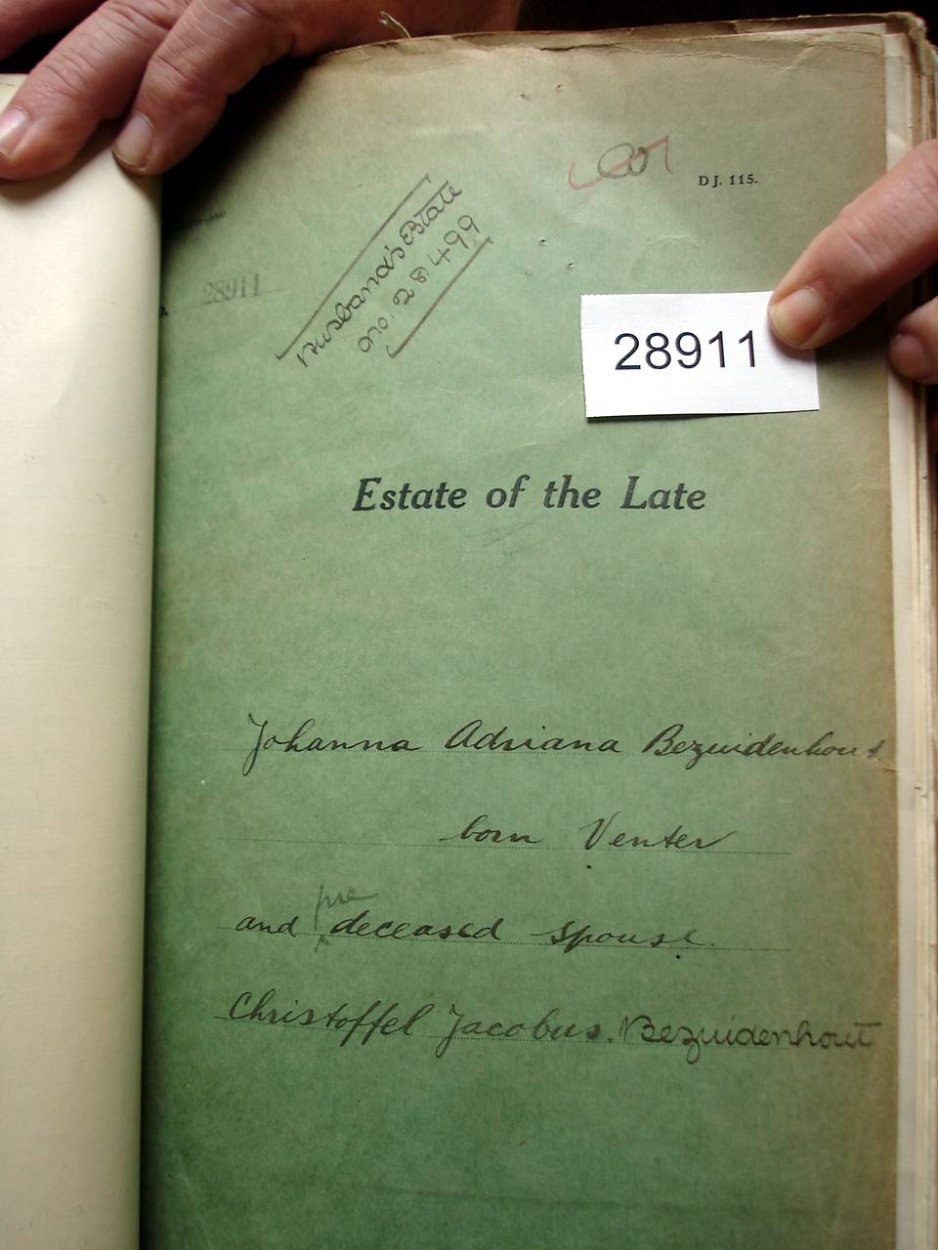 D J. 115.
Husband's Estate
no. 28499
28911
28911
Estate of the Late
Johanna Adriana Bezuidenhout
born Venter
pre
and deceased spouse.
Christoffel Jacobus. Bezuidenhout